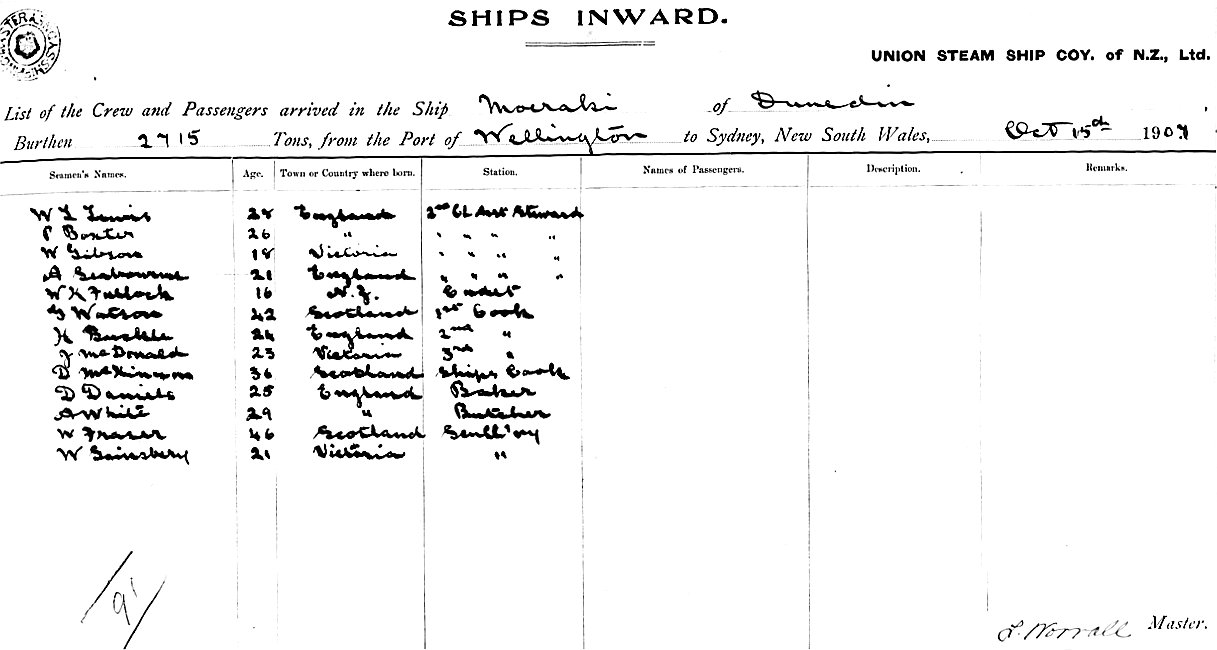 SHIPS INWARD.
UNION STEAM SHIP COY. of N.Z., Ltd.
List of the Crew and Passengers arrived in the Ship Moeraki of Dunedin
Burthen 2715 Tons, from the Port of Wellington to Sydney, New South Wales, Oct 15th 1907
Seamen's Names. Age. Town or Country where born. Station. Names of Passengers. Description. Remarks.
W L Lewis 28 England 2nd Cl Asst Steward
P Boxter 26 " " " " "
W Gibson 18 Victoria " " " "
A Seabourne 21 England " " " "
W K Fullock 16 N.Z. Cadet
G Watson 42 Scotland 1st Cook
H Buckle 24 England 2nd "
J McDonald 23 Victoria 3rd "
D McKinnon 36 Scotland Ships Cook
D Daniels 25 England Baker
A White 29 " Butcher
W Fraser 46 Scotland Scull'ry
W Sainsbery 21 Victoria "
91
L. Worrall Master.